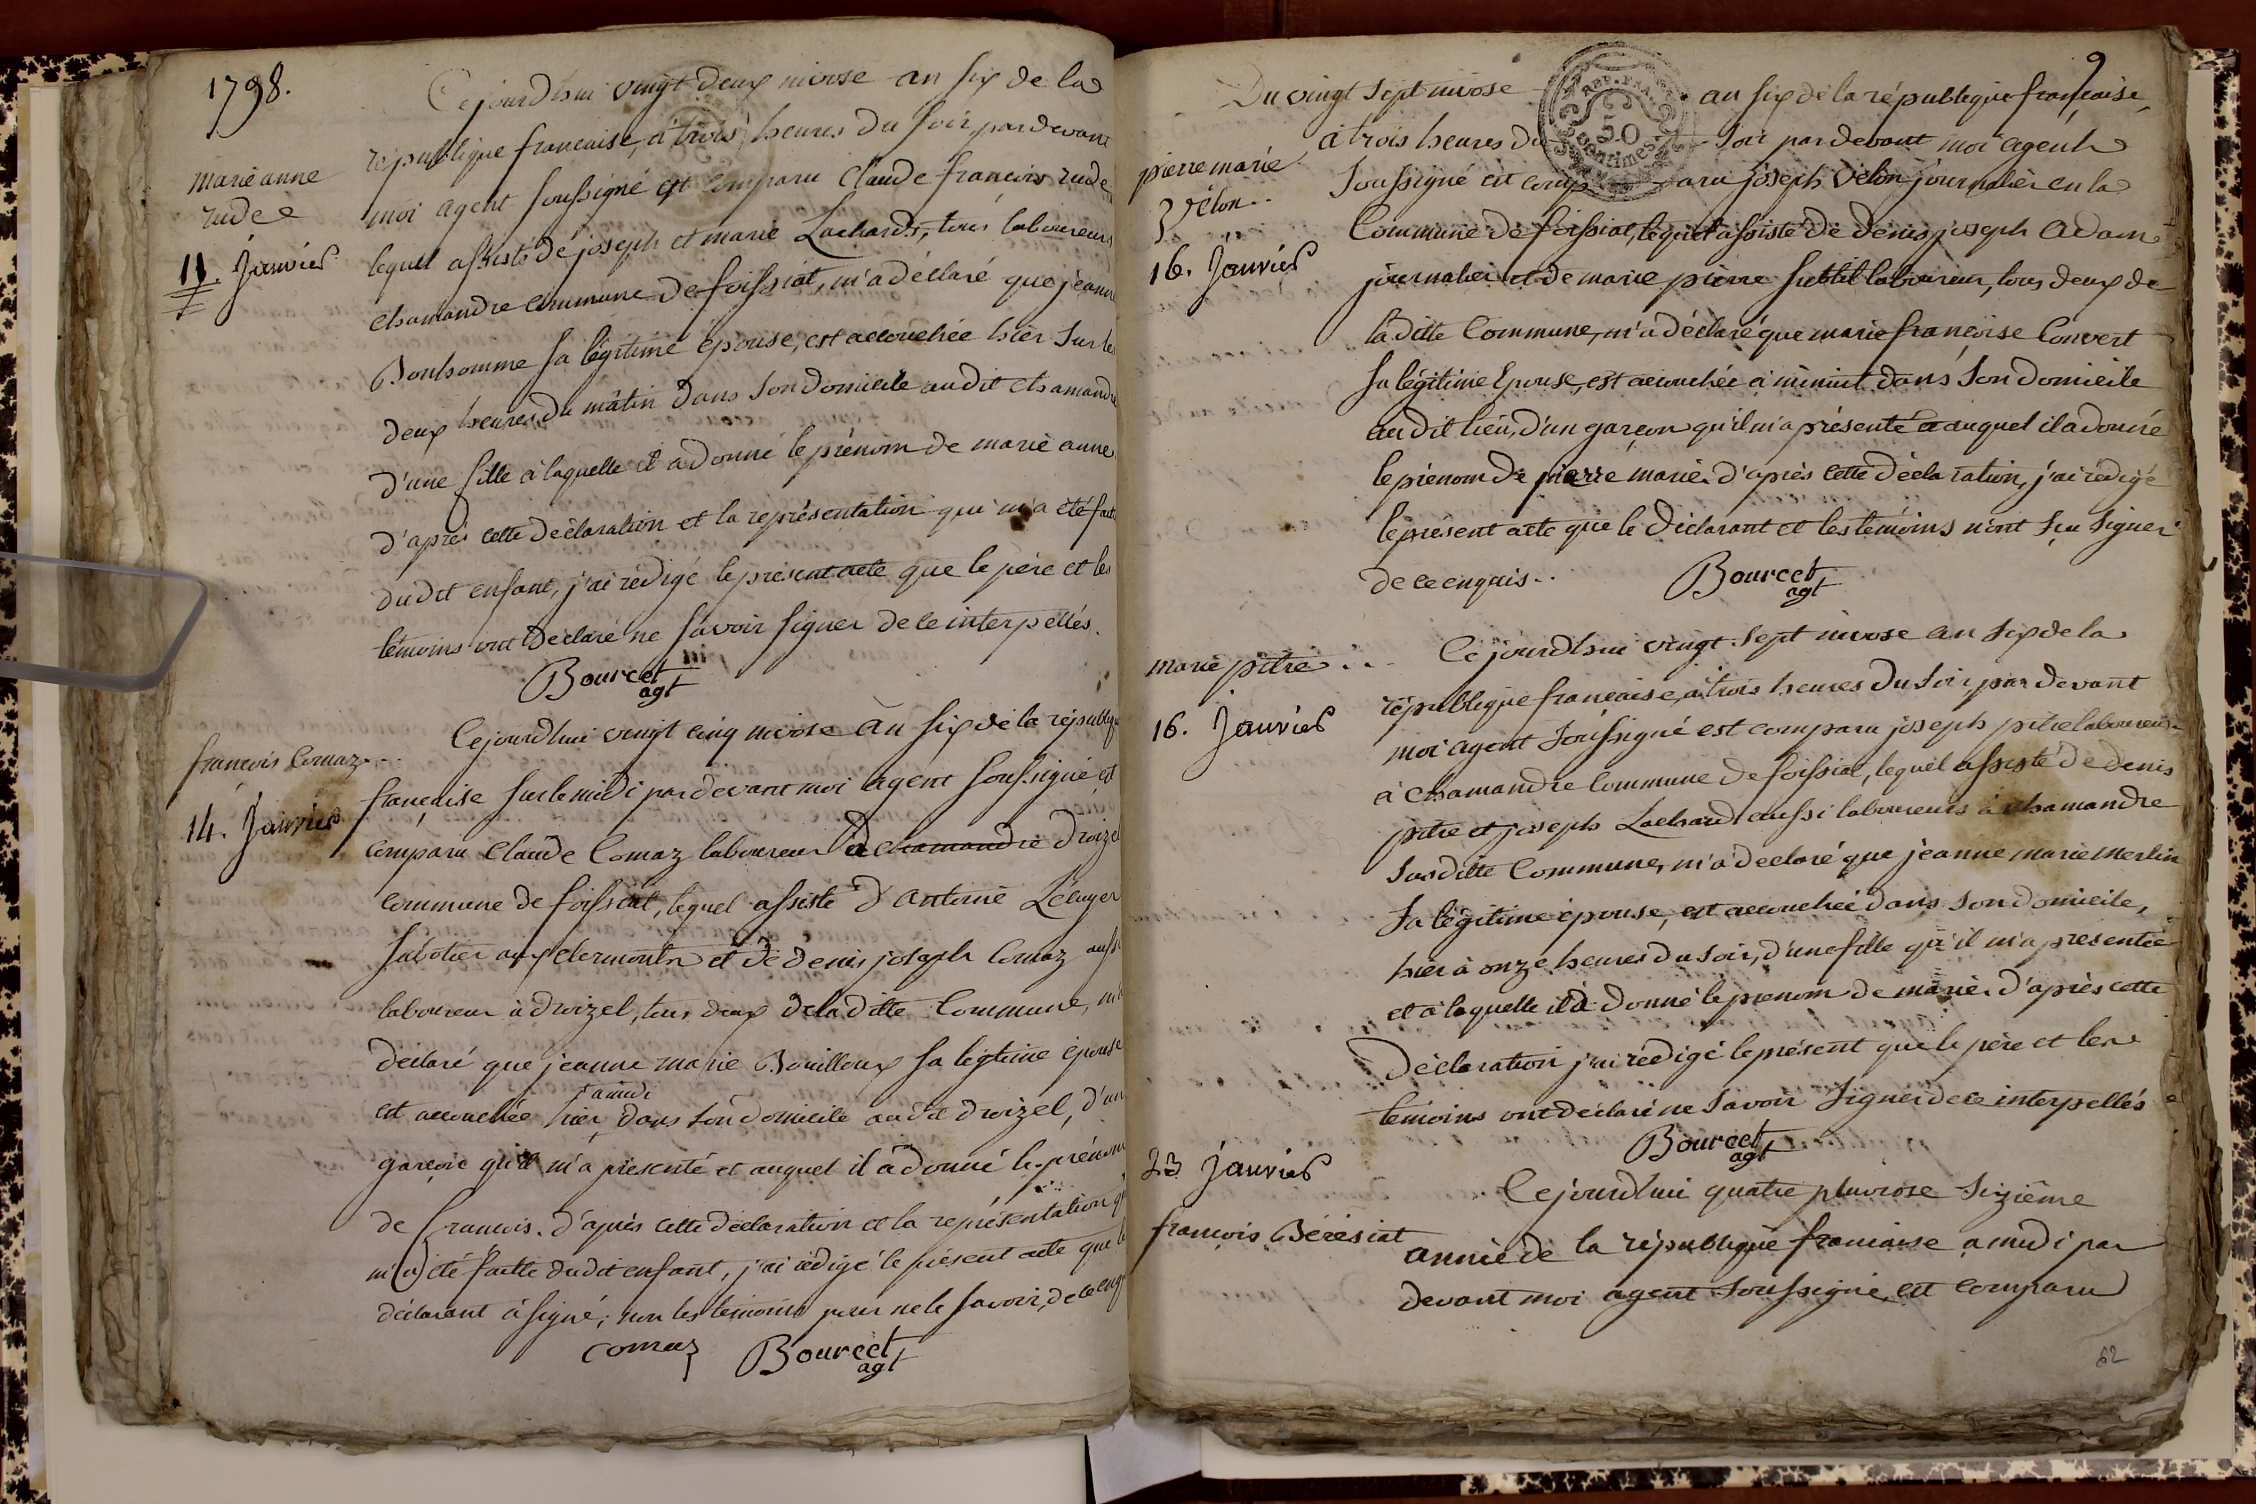 1798.
Cejourd'hui vingt deux nivose an six de la
republique francaise, à trois heures du soir, pardevant
marie anne
rude
moi agent soussigné est comparu Claude francois rude
11. Janvier
lequel assisté de joseph et marie Lachard, tous laboureurs
chamandre commune de foissiat, m'a déclaré que jeanne
Bonhomme sa légitime épouse, est accouchée hier sur les
deux heures du mâtin dans son domicile audit chamandre
d'une fille à laquelle il a donné le prénom de marie anne
d'après cette déclaration et la représentation qui m'a été faite
dudit enfant, j'ai rédigé le présent acte que le père et les
témoins ont déclaré ne savoir signer de ce interpellés.
Bourcet
agt
françois Comaz
Cejourd'hui vingt cinq nivose an six de la républiq
14. Janvier
française sur le midi pardevant moi agent soussigné est
comparu Claude Comaz laboureur à chamandre droizel
commune de foissiat, lequel assisté d'antoine Lécuyer
sabotier aux clermonts et de denis joseph Comaz aussi
laboureur à droizel, tous deux de la ditte Commune, m'a
déclaré que jeanne marie Bouilloux sa légitime épouse
est accouchée hier à midi dans son domicile audit droizel, d'un
garçon qu'il m'a présenté et auquel il a donné le prénom
de francois. d'après cette déclaration et la représentation qui
m'(a) été faitte dudit enfant, j'ai rédigé le présent acte que le
déclarant à signé, non les témoins pour ne le savoir, de ce enq
comaz Bourcet
agt
9
Du vingt sept nivose an six de la république française,
REP. FRA.
50
centimes
à trois heures du soir pardevant moi agent
pierre marie
vélon
soussigné est comparu joseph vélon journalier en la
Commune de foissiat, lequel assisté de denis joseph adam
16. Janvier
journalier et de marie pierre subtil laboureur, tous deux de
la ditte Commune, m'a déclaré que marie francoise Convert
sa légitime Epouse, est accouchée à minuit dans son domicile
audit lieu, d'un garçon qu'il m'a présenté et auquel il a donné
le prénom de pierre marie. d'après cette déclaration, j'ai rédigé
le présent acte que le déclarant et les temoins n'ont sçu signer
de ce enquis..
Bourcet
agt
marie pitre
Cejourd'hui vingt sept nivose an six de la
république francaise, à trois heures du soir, par devant
16. Janvier
moi agent soussigné est comparu joseph pitre laboureur
à chamandre commune de foissiat, lequel assisté de denis
pitre et joseph Lachard aussi laboureurs à chamandre
susditte Commune, m'a déclaré que jeanne marie Merlin
sa légitime épouse, est accouchée dans son domicile,
hier à onze heures du soir, d'une fille qu'il m'a présentée
et à laquelle il a donné le prenom de marie. d'après cette
déclaration j'ai rédigé le présent que le père et les
témoins ont déclaré ne savoir signer de ce interpellés
Bourcet
agt
23 Janvier
Cejourd'hui quatre pluviose sixième
françois Bérésiat
année de la république francaise à midi par
devant moi agent soussigné, est comparu
62